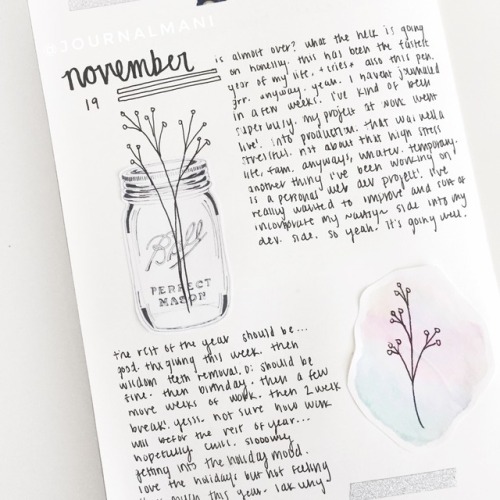 @JOURNALMANI
november
19
is almost over? what the heck is going
on honestly. this has been the fastest
year of my life. *cries* also this pen.
grr. anyway. yeah. I havent journaled
in a few weeks. I've kind of been
super busy. my project at work went
live! into production. that was hella
stressful. not about that high stress
life, fam. anyways, whatev. temporary.
another thing i've been working on
is a personal web dev project. I've
really wanted to improve and sort of
incorporate my ~artsy~ side into my
dev. side. so yeah. it's going well.
Ball
PERFECT
MASON
the rest of the year should be...
good. thxgiving this week. then
wisdom teeth removal. D: should be
fine. then birthday. then a few
more weeks of work. then 2 week
break! yesss. not sure how work
will be for the rest of year...
hopefully chill. sloowwly
getting into the holiday mood.
love the holidays but not feeling
this much this year. idk why